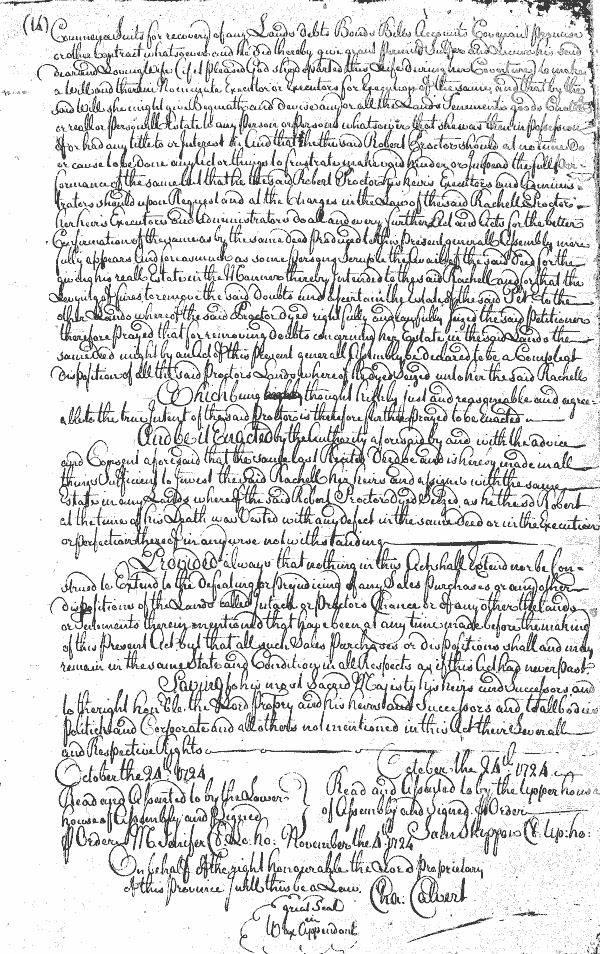 (14) Conveyances for recovery of any Lands debts Bonds Billes Accounts Covenant Promise
or other Contract whatsoever and he did thereby give grant permitt Suffer and Lycence his said
dear and Loving wife (if it pleased God shee departed this Life during her Coverture) to make
a Will and therein Nominate Executor or Executors for Execution of the same and that by the
said Will she might give Bequeath and Devise any or all the Lands Tenements goods Chattles
or reall or Personall Estate to any Person or Persons whatsoever that she was then in possession
of or had any title to or interest in And that he the said Robert Proctor should at no time Do
or cause to be done any Act or things to frustrate make void hinder or Impead the full Per-
formance of the same but that he the said Robert Proctor his heirs Executors and Adminis-
trators should upon Request and at the Charges in the Law of the said Rachell Proctor
her heirs Executors and Administrators do all and every further Act and Acts for the better
Confirmation of the same as by the same deed Produced to this Present generall Assembly more
fully appears And forasmuch as some persons Scruple the Availe of the said Deed for the
giving his reall Estate in the Manner thereby Intended to the said Rachell and for that the
to remove the said Doubts and ascertain the Estate of the said to the
other Lands whereof the said Proctor dyed rightfully and Lawfully Seized the said Petitioner
therefore Prayed that for removing Doubts concerning her Estate in the said Lands the
same Deed might by an Act of this Present generall Assembly be declared to be a Compleat
Disposition of all the said Proctors Lands whereof he Dyed Seized unto her the said Rachell
Which being thought highly Just and reasonable and agree-
able to the true Intent of the said Proctor is therefore further Prayed to be Enacted
And be it Enacted by the Authority aforesaid by and with the advice
and Consent aforesaid that the same last Recited Deed be and is hereby made in all
things Sufficient to Invest the said Rachell her heirs and assigns with the same
Estate in any Lands whereof the said Robert Proctor Dyed Seized as he the said Robert
at the time of his Death was Vested with any Defect in the same Deed or in the Execution
or perfection thereof in any wise notwithstanding
Provided always that nothing in this Act shall Extend nor be Con-
strued to Extend to the Defeating or Prejudicing of any Sales Purchases or any other
dispositions of the Lands called or Proctors Chance or of any other the Lands
or Tenements therein mentioned that have been at any time made before the making
of this Present Act but that all such Sales Purchases or dispositions shall and may
remain in the same State and Condition in all Respects as if this Act had never Past
Saving to his most Sacred Majesty his heirs and Successors and
to the right honble. the Lord Propry and his heirs and Successors and to all bodies
Politick and Corporate and all others not mentioned in this Act their Severall
and Respective Rights
October the 24th 1724
Read and Assented to by the Lower
house of Assembly and Signed
p Order M Jenifer Cl Lo: ho:
October the 24th 1724
Read and Assented to by the Upper house
of Assembly and Signed p Order
Sam Skippon Cl. Up: ho:
November the 4th 1724
On behalf of the right honourable the Lord Proprietary
of this Province I will this be a Law. Cha: Calvert
great Seal
in
Wax Appendant